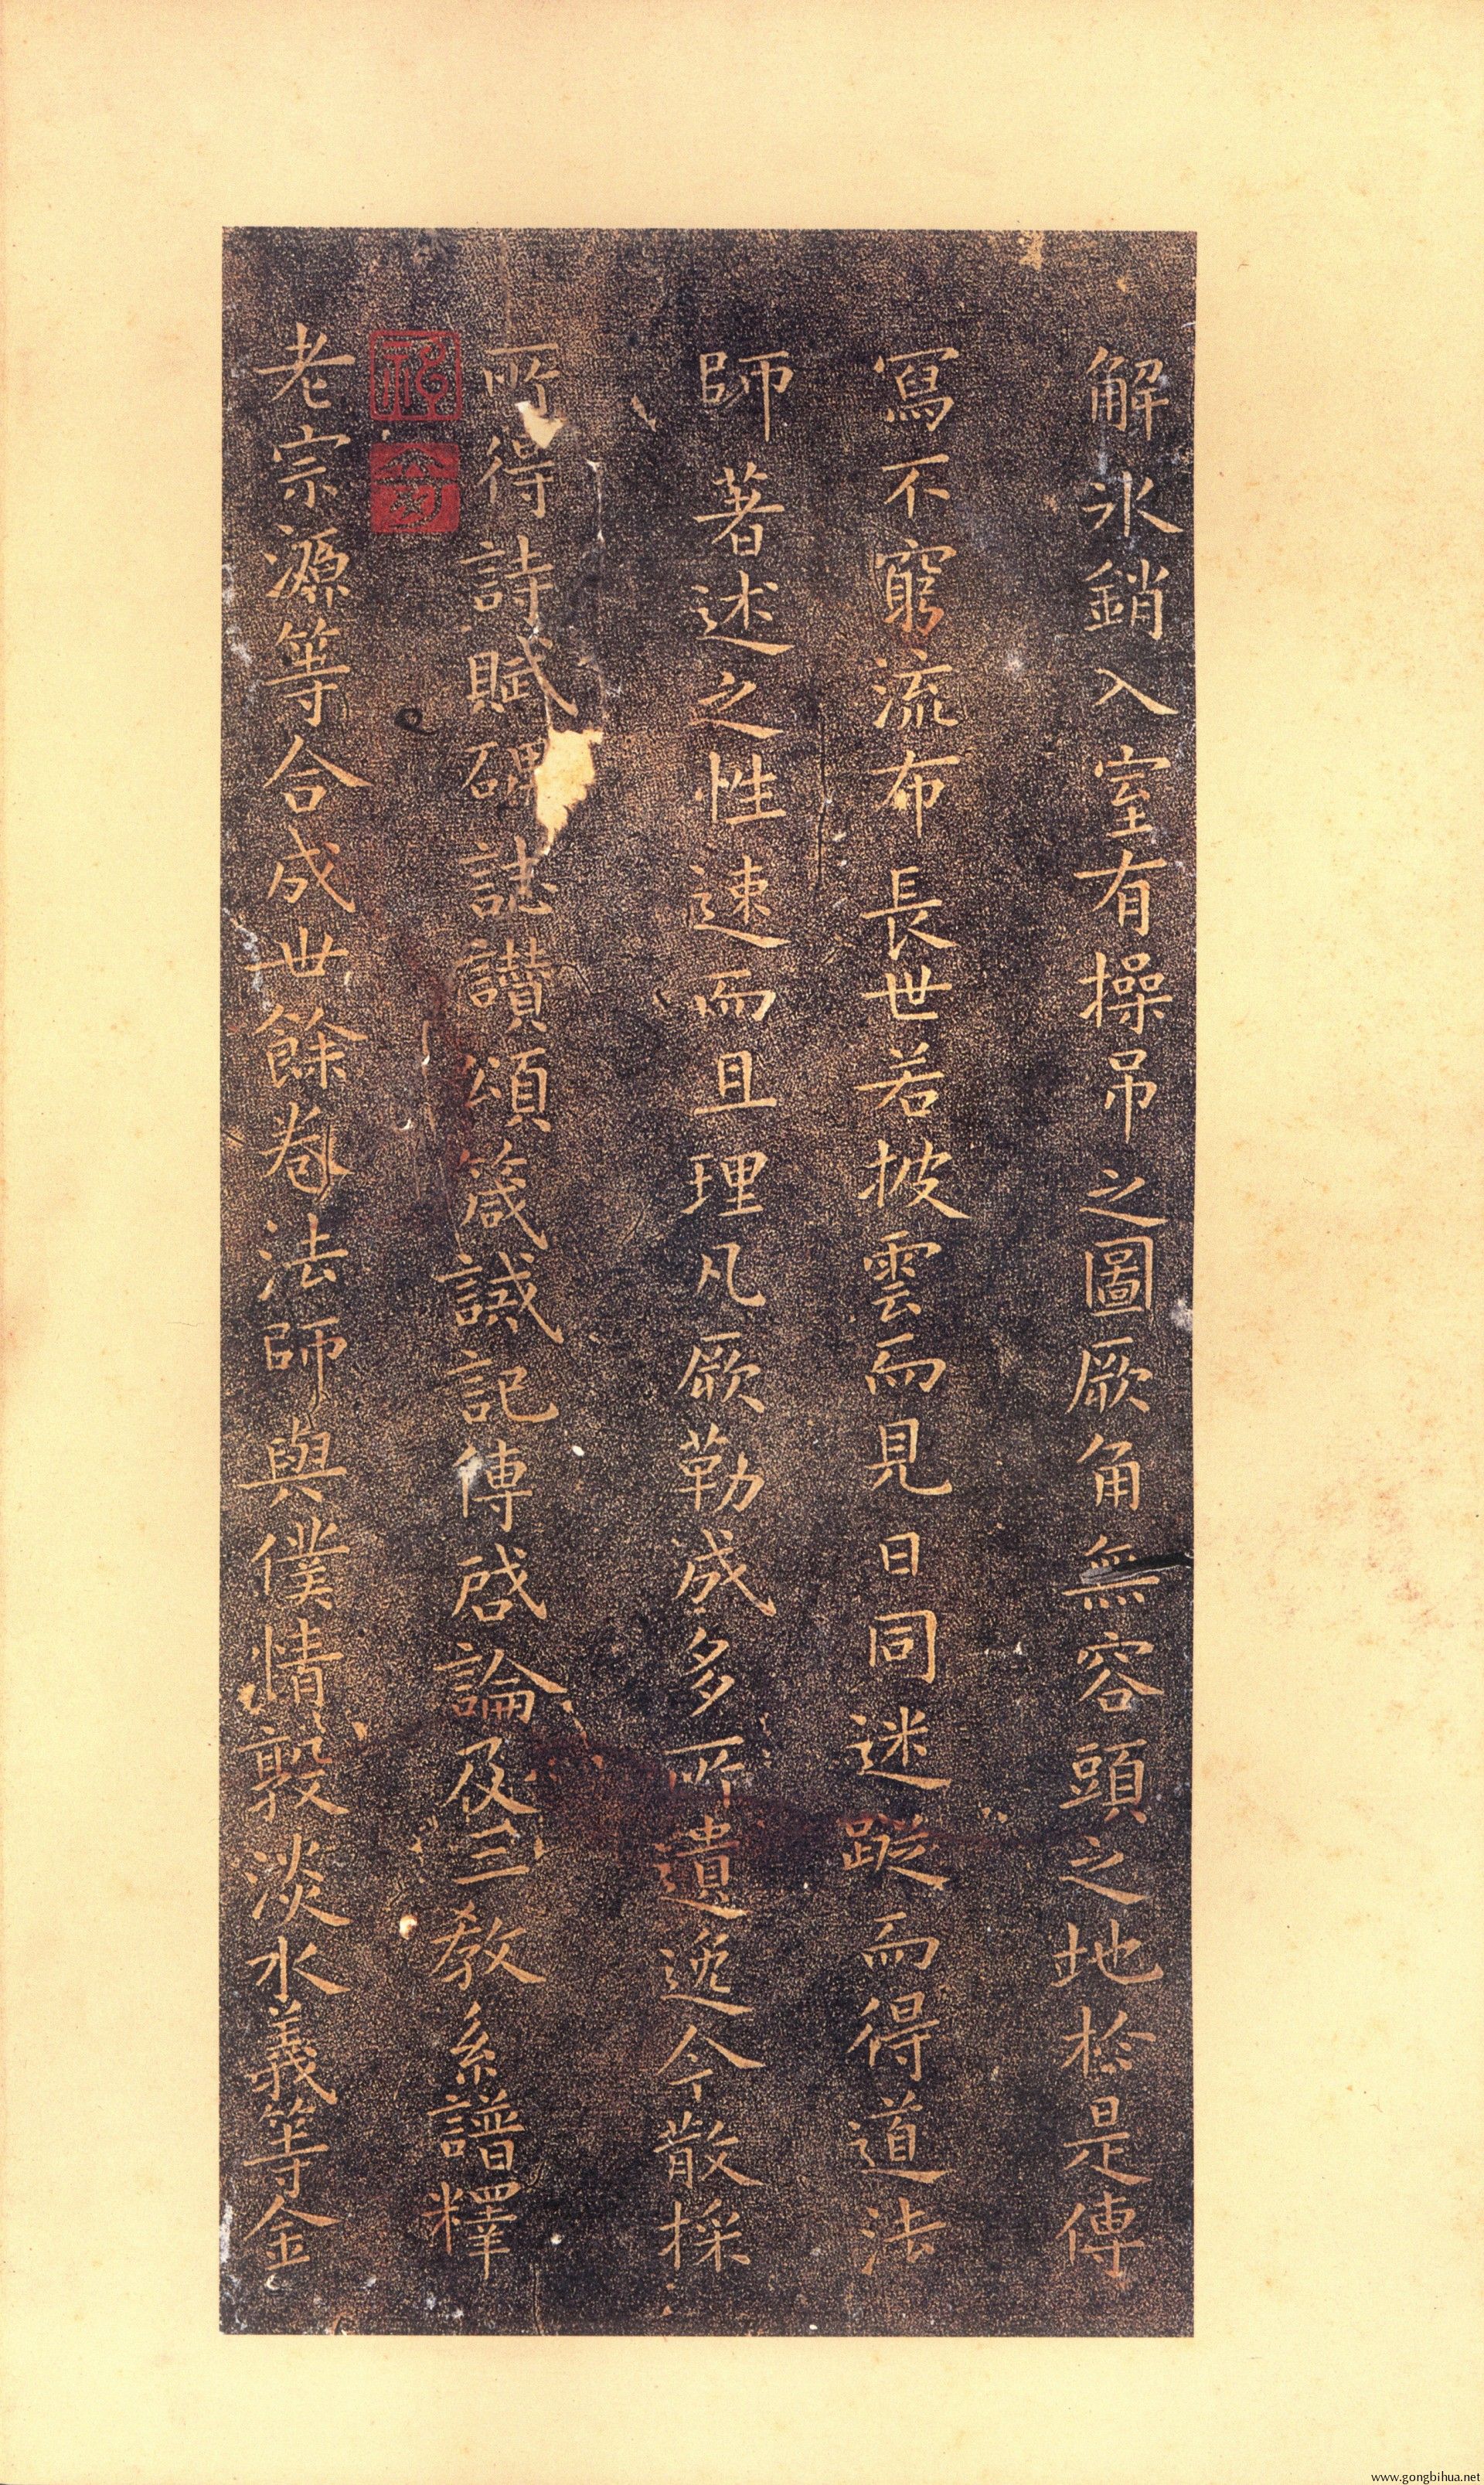 解氷銷入室有操吊之圖厥角無容頭之地松是傳
寫不窮流布長世若披雲而見日同迷蹤而得道法
師著述之性速而且理凡厥勒成多所遺逸今散採
所得詩賦碑誌讃頌箴誡記傳啓論及三教系譜釋
老宗源等合成卅餘卷法師與僕情敦淡水義等金
www.gongbihua.net